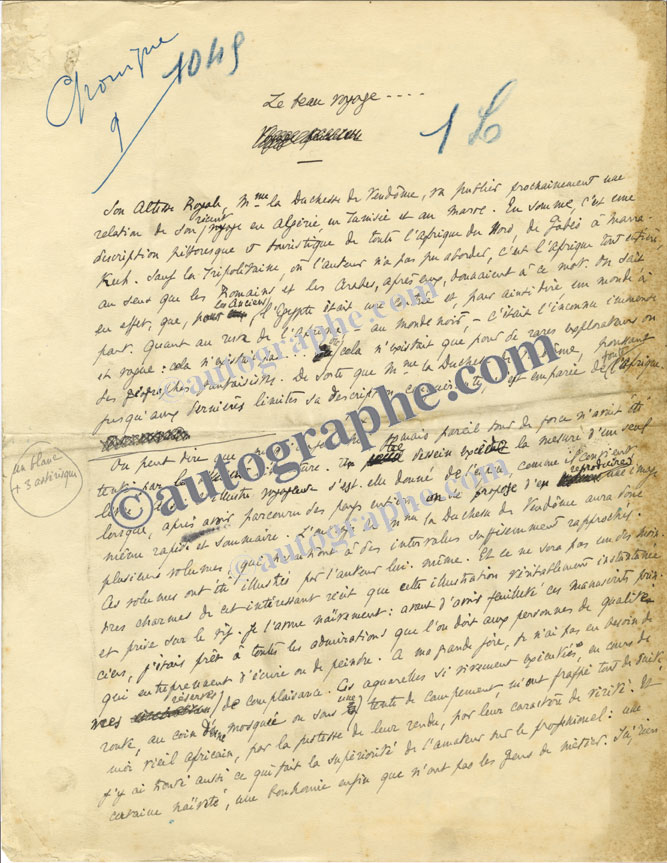 Chronique
9
1049
1 L
Le beau voyage ....
Son Altesse Royale, Mme la Duchesse de Vendôme, va publier prochainement une
relation de son récent voyage en Algérie, en Tunisie et au Maroc. En somme, c'est une
description pittoresque et touristique de toute l'Afrique du Nord, de Gabès à Marra-
kech. Sauf la Tripolitaine, où l'auteur n'a pas pu aborder, c'est l'Afrique tout entière
au sens que les Romains et les Arabes, après eux, donnaient à ce mot. On sait
en effet, que, pour les Anciens, l'Egypte était une et pour ainsi dire un monde à
part. Quant au reste de l'Afrique – au monde noir, – c'était l'inconnu immense
et vague : cela n'existait pas cela n'existait que pour de rares explorateurs ou
des géographes fantaisistes. De sorte que Mme la Duchesse de Vendôme, poussant
jusqu'aux dernières limites sa description s'est emparée de toute l'Afrique.
un blanc
+ 3 astérisques
On peut dire que jamais pareil tour de force n'avait été
tenté par la Un tel dessein excédait la mesure d'un seul
illustre voyageuse s'est-elle donné de l'air, comme il convient
lorsque, après avoir parcouru des pays entiers on se propose d'en reproduire une image
même rapide et sommaire. de Mme la Duchesse de Vendôme aura donc
plusieurs volumes, qui paraîtront à des intervalles suffisamment rapprochés.
Ces volumes ont été illustrés par l'auteur lui-même. Et ce ne sera pas un des moin-
dres charmes de cet intéressant récit que cette illustration véritablement instantanée
et prise sur le vif. Je l'avoue naïvement : avant d'avoir feuilleté ces manuscrits prin-
ciers, j'étais prêt à toutes les admirations que l'on doit aux personnes de qualité
qui entreprennent d'écrire ou de peindre. A ma grande joie, je n'ai pas eu besoin de
mes réserves de complaisance. Ces aquarelles si vivement exécutées, en cours de
route, au coin d'une mosquée ou sous une tente de campement, m'ont frappé tout de suite
moi vieil Africain, par la justesse de leur rendu, par leur caractère de vérité. Et
j'y ai trouvé aussi ce qui fait la supériorité de l'amateur sur le professionnel : une
certaine naïveté, une bonhomie enfin que n'ont pas les gens de métier.
©autographe.com
©autographe.com
©autographe.com